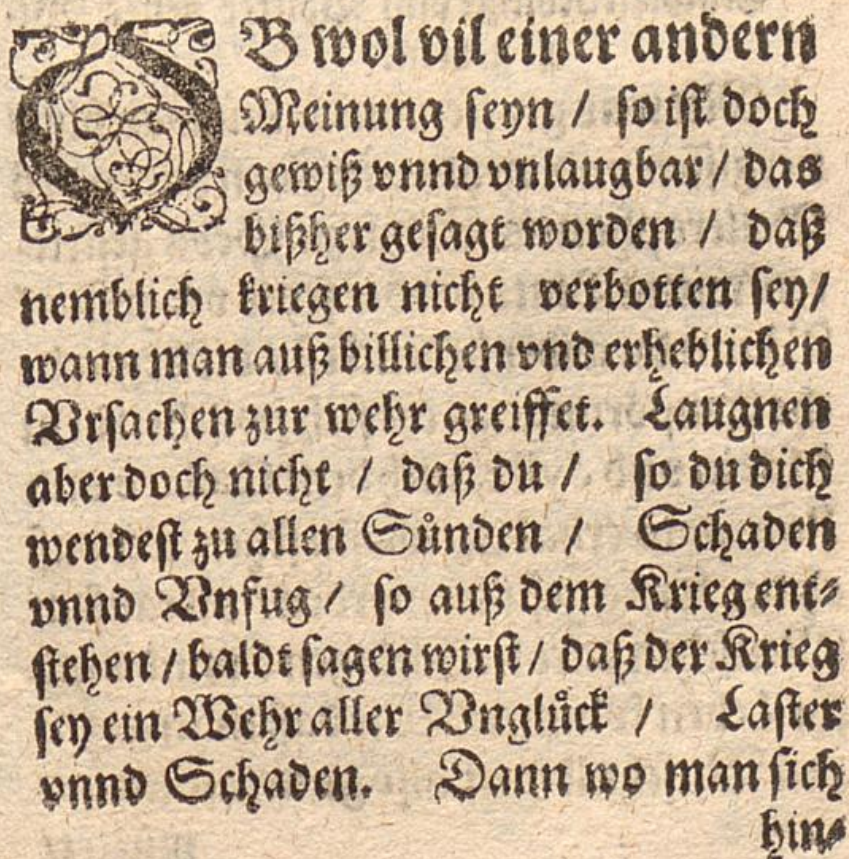 OB wol vil einer andern
Meinung seyn / so ist doch
gewiß vnnd vnlaugbar / das
bißher gesagt worden / daß
nemblich kriegen nicht verbotten sey/
wann man auß billichen vnd erheblichen
Vrsachen zur wehr greiffet. Laugnen
aber doch nicht / daß du / so du dich
wendest zu allen Sünden / Schaden
vnnd Vnfug / so auß dem Krieg ent-
stehen / baldt sagen wirst / daß der Krieg
sey ein Wehr aller Vnglück / Laster
vnnd Schaden. Dann wo man sich
hin-